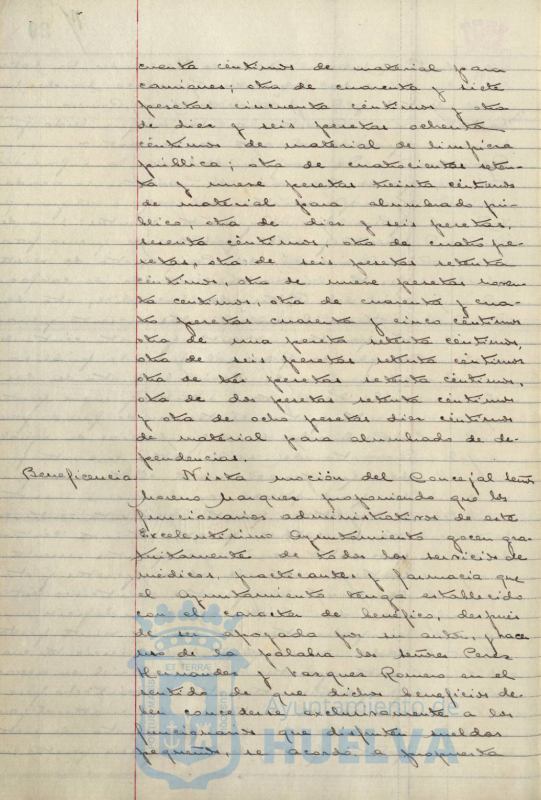 cuenta céntimos de material para
camiones; otra de cuarenta y siete
pesetas cincuenta céntimos y otra
de diez y seis pesetas ochenta
céntimos de material de limpieza
pública; otra de cuatrocientas seten-
ta y nueve pesetas treinta céntimos
de material para alumbrado pú-
blico, otra de diez y seis pesetas,
sesenta céntimos, otra de cuatro pe-
setas, otra de seis pesetas setenta
céntimos, otra de nueve pesetas noven-
ta centimos, otra de cuarenta y cua-
tro pesetas cuarenta y cinco céntimos
otra de una peseta setenta céntimos,
otra de seis pesetas setenta céntimos
otra de tres pesetas setenta céntimos,
otra de dos pesetas setenta céntimos
y otra de ocho pesetas diez céntimos
de material para alumbrado de de-
pendencias.
Beneficencia Vista moción del Concejal señor
Moreno Marquez proponiendo que los
funcionarios administrativos de este
Excelentísimo Ayuntamiento gocen gra-
tuitamente de todos los servicios de
médicos, practicantes y farmacia que
el Ayuntamiento tenga establecido
con el caracter de benéfico, después
de ser apoyada por su autor, y hacer
uso de la palabra los señores Perez
Hernandez y Vazquez Romero en el
sentido de que dichos beneficios de-
ben concederse exclusivamente a los
funcionarios que disfruten sueldos
pequeños, se acordó a propuesta
Ayuntamiento de
HUELVA